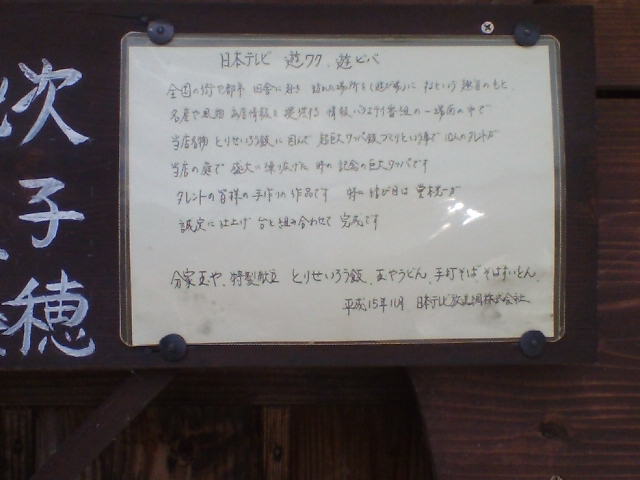 次子穂
日本テレビ 遊ワク、遊ビバ
全国の街や都市 田舎に
名産や風習 お店情報を提供する 情報バラエティ番組の一場面の中で
当店名物 とりせいろう飯に因んで 超巨大ワッパ飯づくりという事で 10人のタレントが
当店の庭で 盛大に 時の記念の巨大ワッパです
タレントの皆様の手作りの作品です 特に結び目は
誠実に仕上げ 台と組み合わせて 完成です
分家玉や、特製献立 とりせいろう飯、玉やうどん、手打そば そばすいとん、
平成15年11月 日本テレビ放送網株式会社